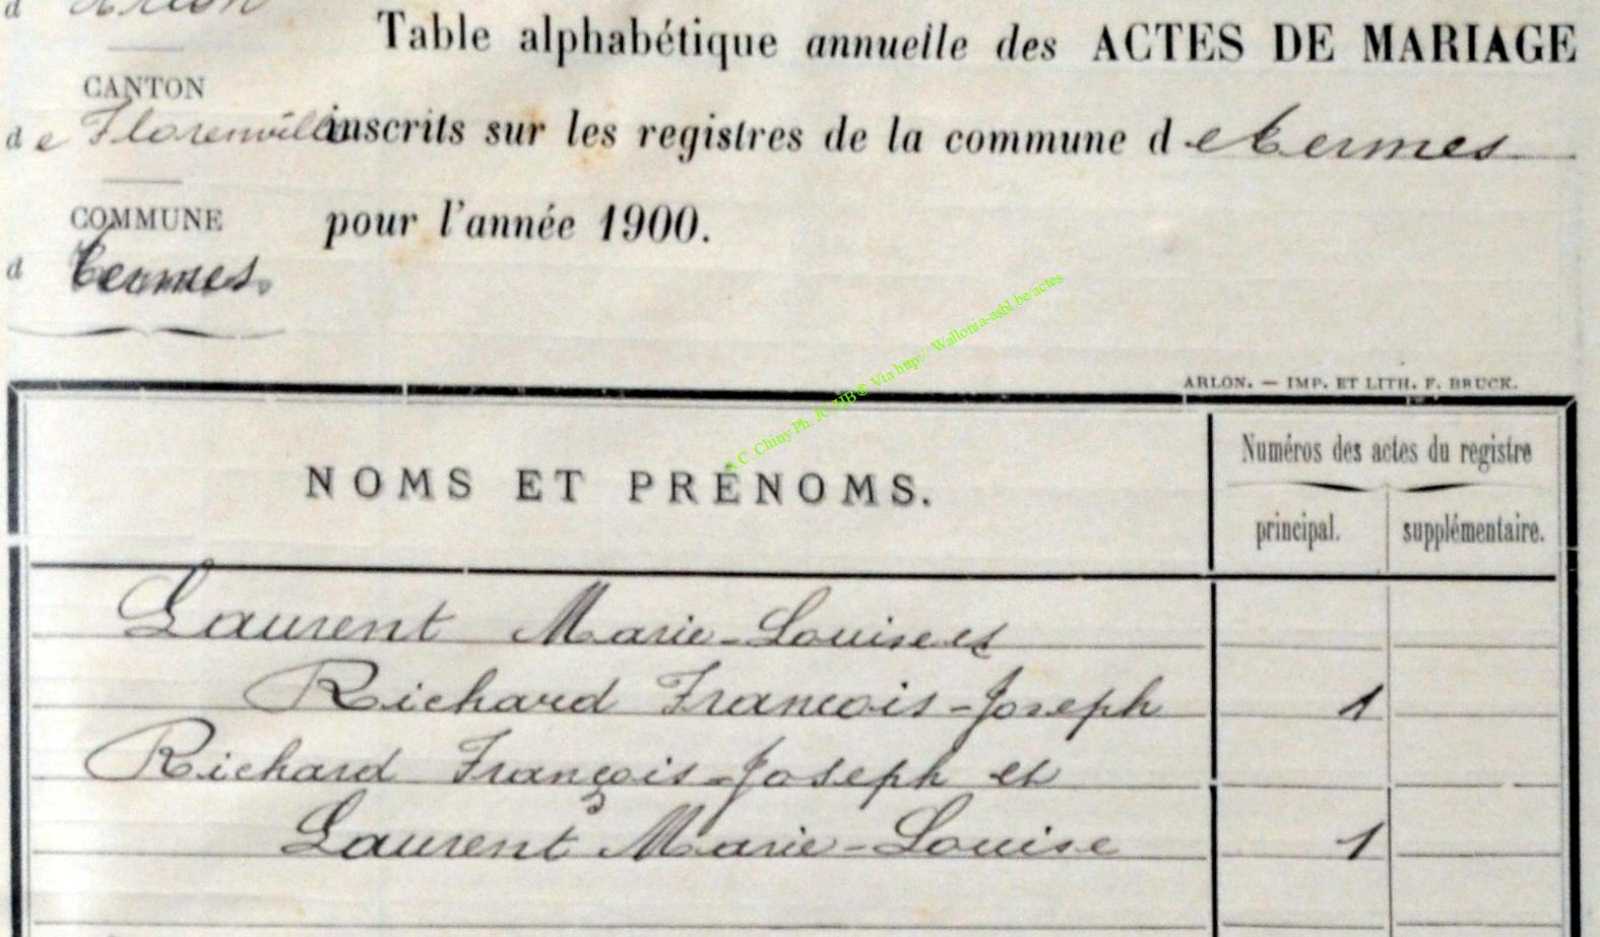 d Arlon
Table alphabétique annuelle des ACTES DE MARIAGE
CANTON
de Florenville
inscrits sur les registres de la commune de Termes
COMMUNE
pour l'année 1900.
d Termes.
Wallonia-asbl.be/actes
ARLON. — IMP. ET LITH. F. BRUCK.
Numéros des actes du registre
NOMS ET PRÉNOMS.
principal.
supplémentaire.
Laurent Marie-Louise et
Richard Francois-Joseph 1
Richard François-Joseph et
Laurent Marie-Louise 1